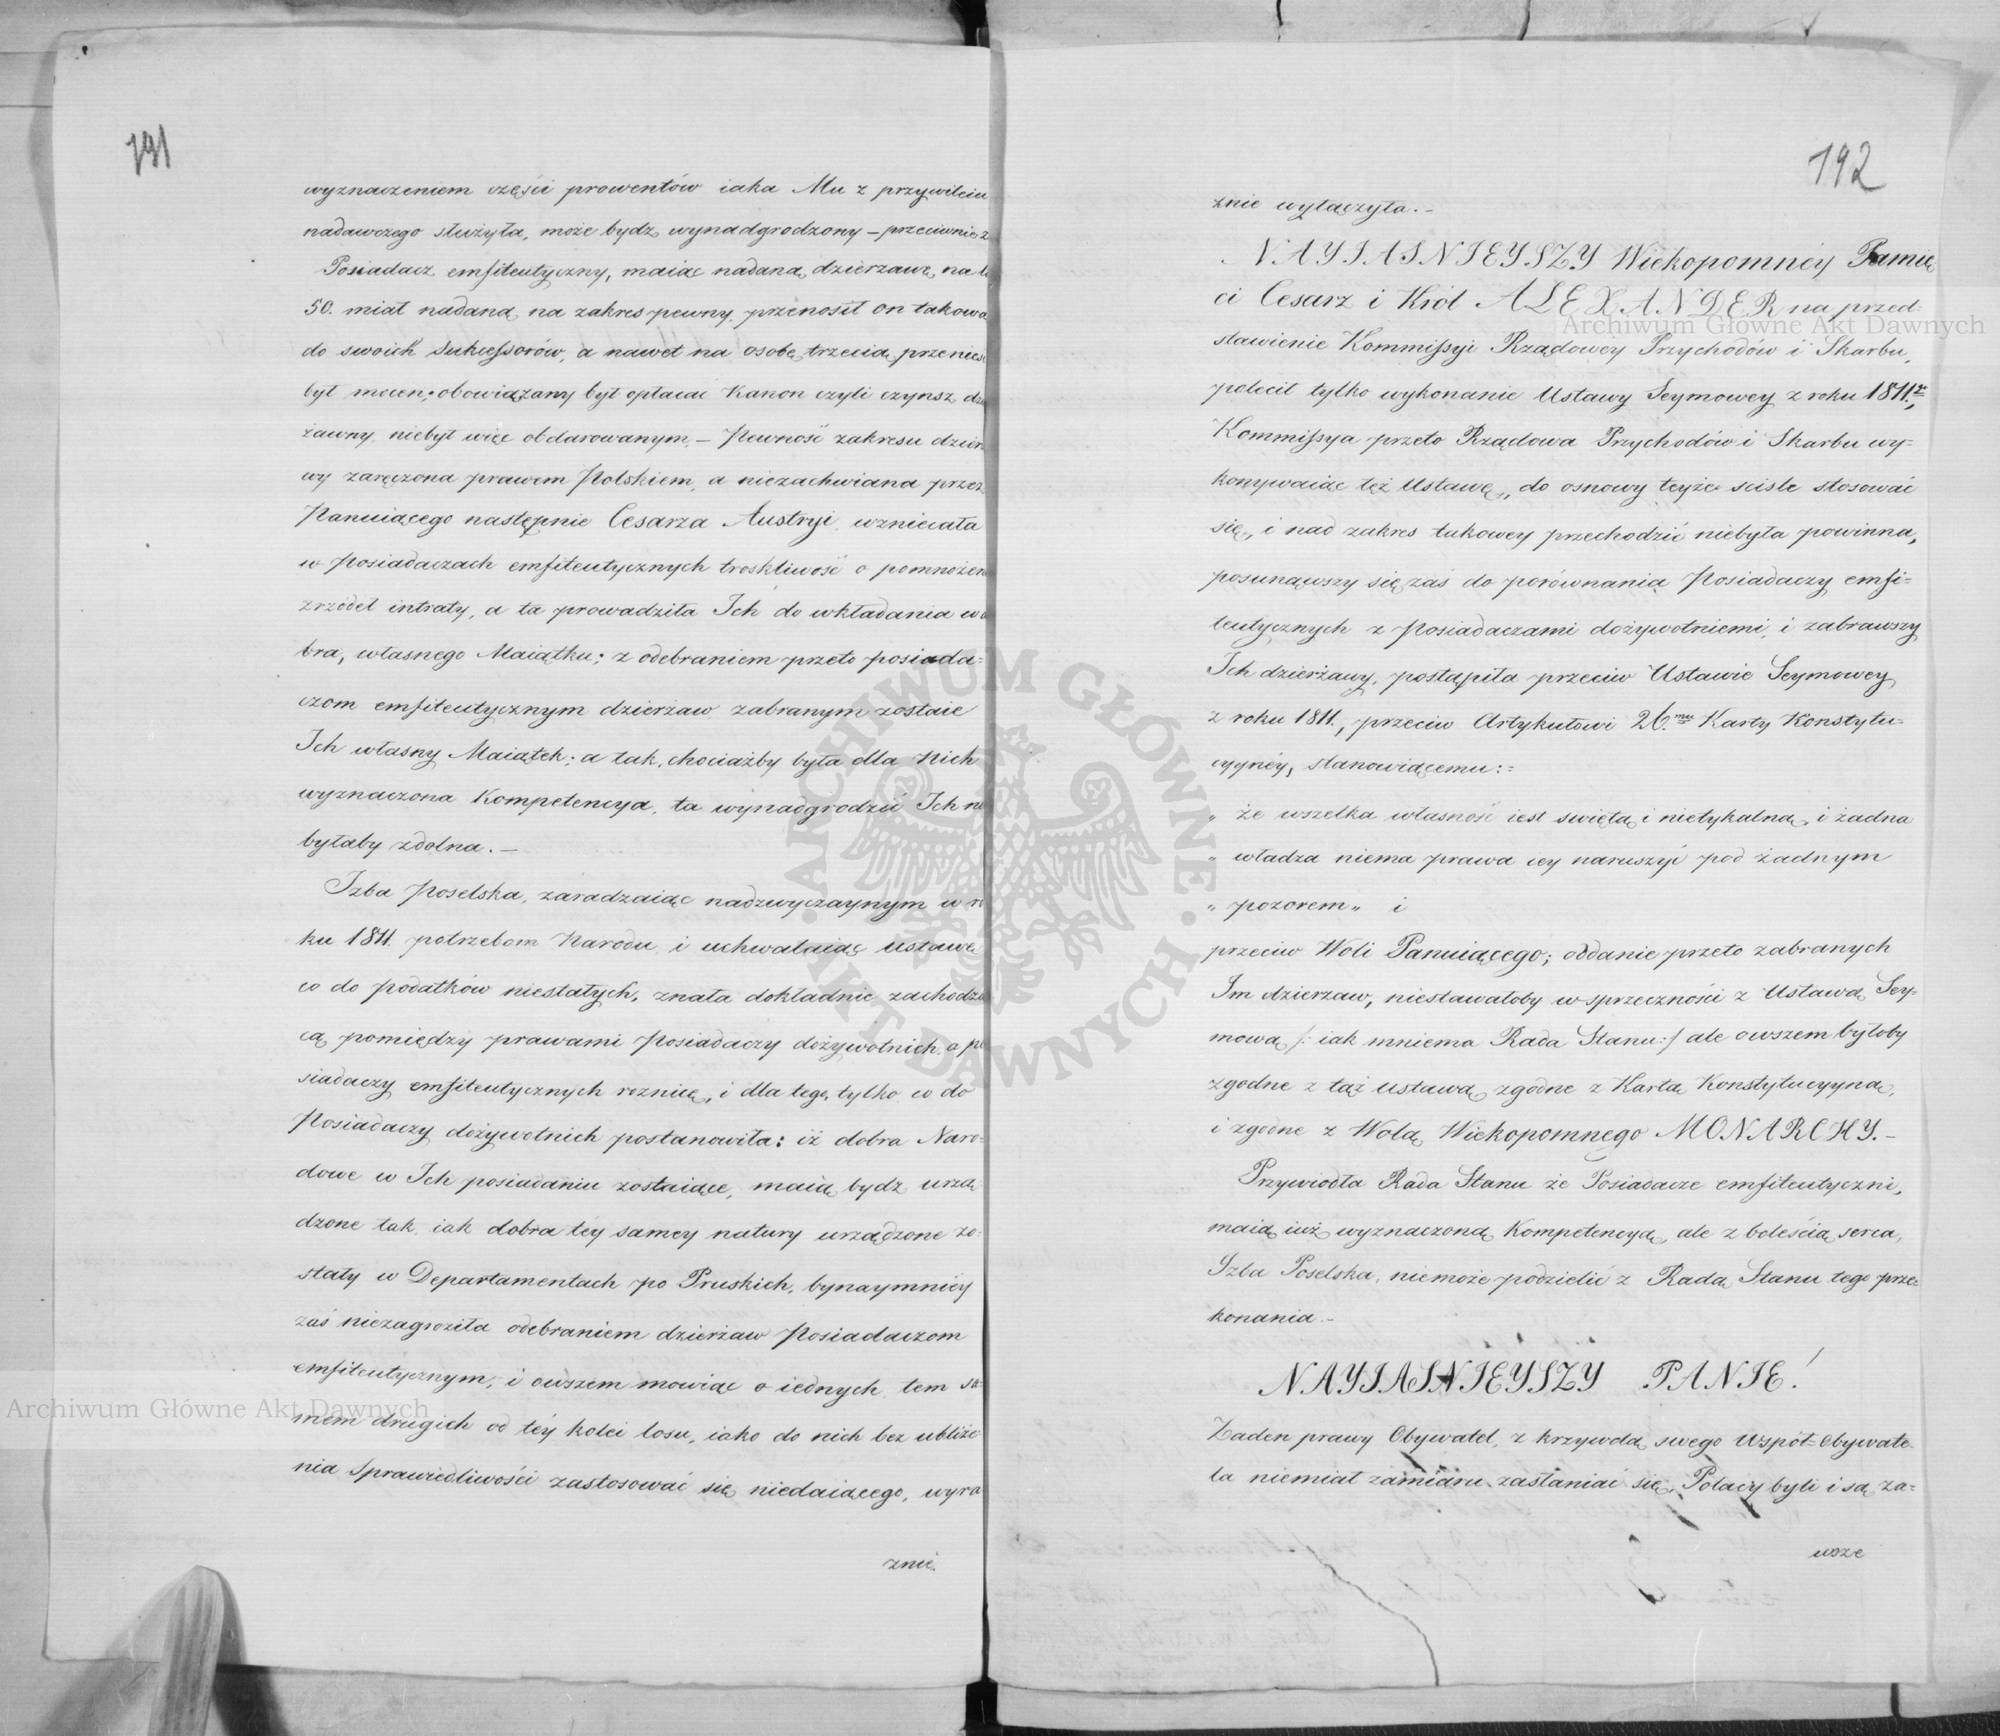 191
wyznaczeniem częśći prowentów iaka Mu z przywileiu
nadawczego służyła, może bydz wynadgrodzony – przeciwnie z
Posiadacz emfiteutyczny, maiąc nadaną dzierzawę na lat
50. miał nadaną na zakres pewny, przenosił on takową
do swoich Sukcessorów, a nawet na osobę trzecią przenieść
był mocen; obowiązany był opłacać Kanon czyli czynsz dzier
żawny, niebył więc obdarowanym. – Pewność zakresu dzierża
wy zaręczona prawem Polskiem, a niezachwiana przez
Panuiącego następnie Cesarza Austryi, wzniecała
w Posiadaczach emfiteutycznych troskliwość o pomnożenie
zrzódeł intraty, a ta prowadziła Ich do wkładania w do
bra, własnego Maiątku; z odebraniem przeto posiada=
czom emfiteutycznym dzierzaw zabranym zostaie
Ich własny Maiątek; a tak, chociażby była dla Nich
wyznaczona Kompetencya, ta wynadgrodzić Ich nie
byłaby zdolna. –
Izba Poselska, zaradzaiąc nadzwyczaynym w ro
ku 1811. potrzebom Narodu, i uchwalaiąc ustawę
co do podatków niestałych, znała dokładnie zachodzą
cą pomiędzy prawami Posiadaczy dożywotnich, a po
siadaczy emfiteutycznych roznicę, i dla tego, tylko co do
Posiadaczy dożywotnich postanowiła: iż dobra Naro=
dowe w Ich posiadaniu zostaiące, maią bydz urzą
dzone tak, iak dobra téy samey natury urządzone zo=
stały w Departamentach po Pruskich, bynaymniéy
zaś niezagroziła odebraniem dzierżaw Posiadaczom
emfiteutycznym, i owszem mowiąc o iednych, tem sa=
mém drugich od téy kolei losu, iako do nich bez ubliże=
nia Sprawiedliwośći zastosować się niedaiącego, wyra
znie.
192
znie wyłączyła. –
NAYIASNIEYSZY Wiekopomnéy Pamię
ci Cesarz i Król ALEXANDER na przed=
stawienie Kommissyi Rządowéy Przychodów i Skarbu,
polecił tylko wykonanie Ustawy Seymowey z roku 1811.r,
Kommissya przeto Rządowa Przychodów i Skarbu wy=
konywaiąc też Ustawę, do osnowy teyże scisle stosować
się, i nad zakres takowey przechodzić niebyła powinna,
posunąwszy się zaś do porównania Posiadaczy emfi=
teutycznych z Posiadaczami dożywotniemi, i zabrawszy
Ich dzierżawy, postąpiła przeciw Ustawie Seymowey
z roku 1811., przeciw Artykułowi 26.mu Karty Konstytu=
cyynéy, stanowiącemu:=
„ że wszelka własność iest swięta i nietykalna, i żadna
„ władza niema prawa iey naruszyć pod żadnym
„ pozorem„ i
przeciw Woli Panuiącego; oddanie przeto zabranych
Im dzierzaw, niestawałoby w sprzeczności z Ustawą Sey=
mową /: iak mniema Rada Stanu:/ ale owszem byłoby
zgodne z tąż ustawą, zgodne z Kartą Konstytucyyną,
i zgodne z Wolą Wiekopomnego MONARCHY. –
Przywiodła Rada Stanu że Posiadacze emfiteutyczni,
maią iuż wyznaczoną Kompetencyą, ale z boleścią serca,
Izba Poselska, niemoże podzielić z Radą Stanu tego prze=
konania. –
NAYIASNIEYSZY PANIE!
Żaden prawy Obywatel, z krzywdą swego Współ=Obywate=
la niemiał zamiaru zasłaniać się, Polacy byli i są za=
wsze
Archiwum Główne Akt Dawnych
Archiwum Główne Akt Dawnych
ARCHIWUM GŁÓWNE AKT DAWNYCH